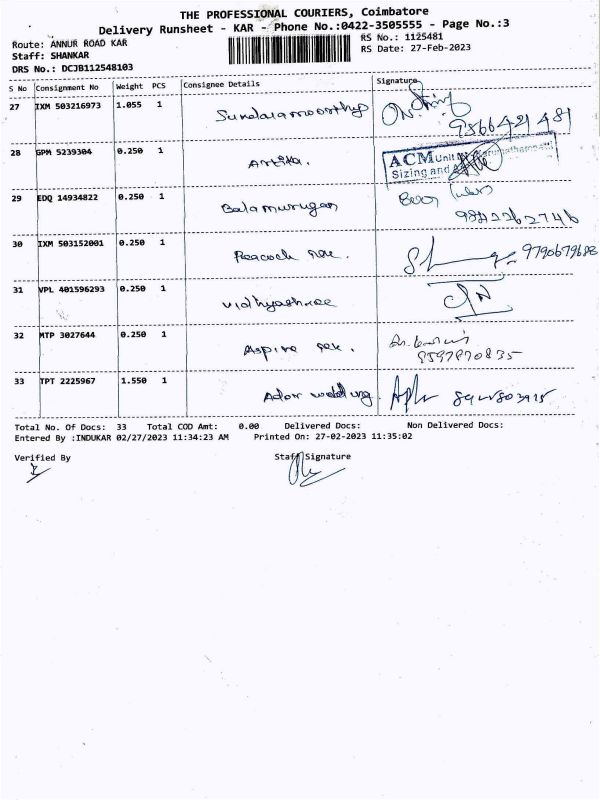 THE PROFESSIONAL COURIERS, Coimbatore
Delivery Runsheet - KAR - Phone No.:0422-3505555 - Page No.:3
Route: ANNUR ROAD KAR
RS No.: 1125481
Staff: SHANKAR
RS Date: 27-Feb-2023
DRS No.: DCJB112548103
S No Consignment No Weight PCS Consignee Details Signature
27 IXM 503216973 1.055 1 Sundaramoorthy
9566421481
28 GPM 5239304 0.250 1
ACM Unit
Sizing and
29 EDQ 14934822 0.250 1 Balamurugan
9842262746
30 IXM 503152001 0.250 1 Peacock 9790679688
31 VPL 401596293 0.250 1 Vidhyashree
32 MTP 3027644 0.250 1 Aspire
9597870835
33 TPT 2225967 1.550 1 Ador welding
Total No. Of Docs: 33 Total COD Amt: 0.00 Delivered Docs: Non Delivered Docs:
Entered By :INDUKAR 02/27/2023 11:34:23 AM Printed On: 27-02-2023 11:35:02
Verified By Staff Signature